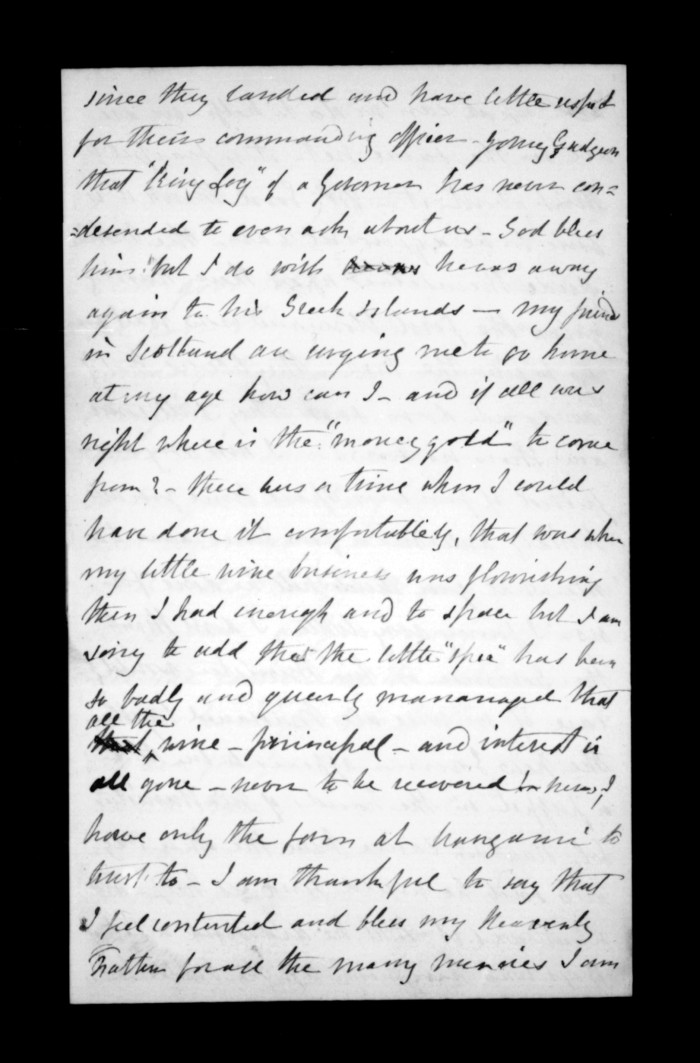 since they landed and have little respect
for theirs commanding officer - young Gudgeon
that "King Log" of a Governor has never con=
=desended to even ask about us - God bless
him! but I do wish he was away
again to his Greek Islands — my friends
in Scotland are urging me to go home
at my age how can I - and if all was
right where is the "money gold" to come
from? - there was a time when I could
have done it comfortablely, that was when
my little wine business was flourishing
then I had enough and to spare but I am
sorry to add that the little "spec" has been
so badly and queerly mananaged that
all the wine - prinncipal - and interest is
all gone - never to be recovered by me, I
have only the farm at to
trust to - I am thankful to say that
I feel contented and bless my Heavenly
Father for all the many mercies I am